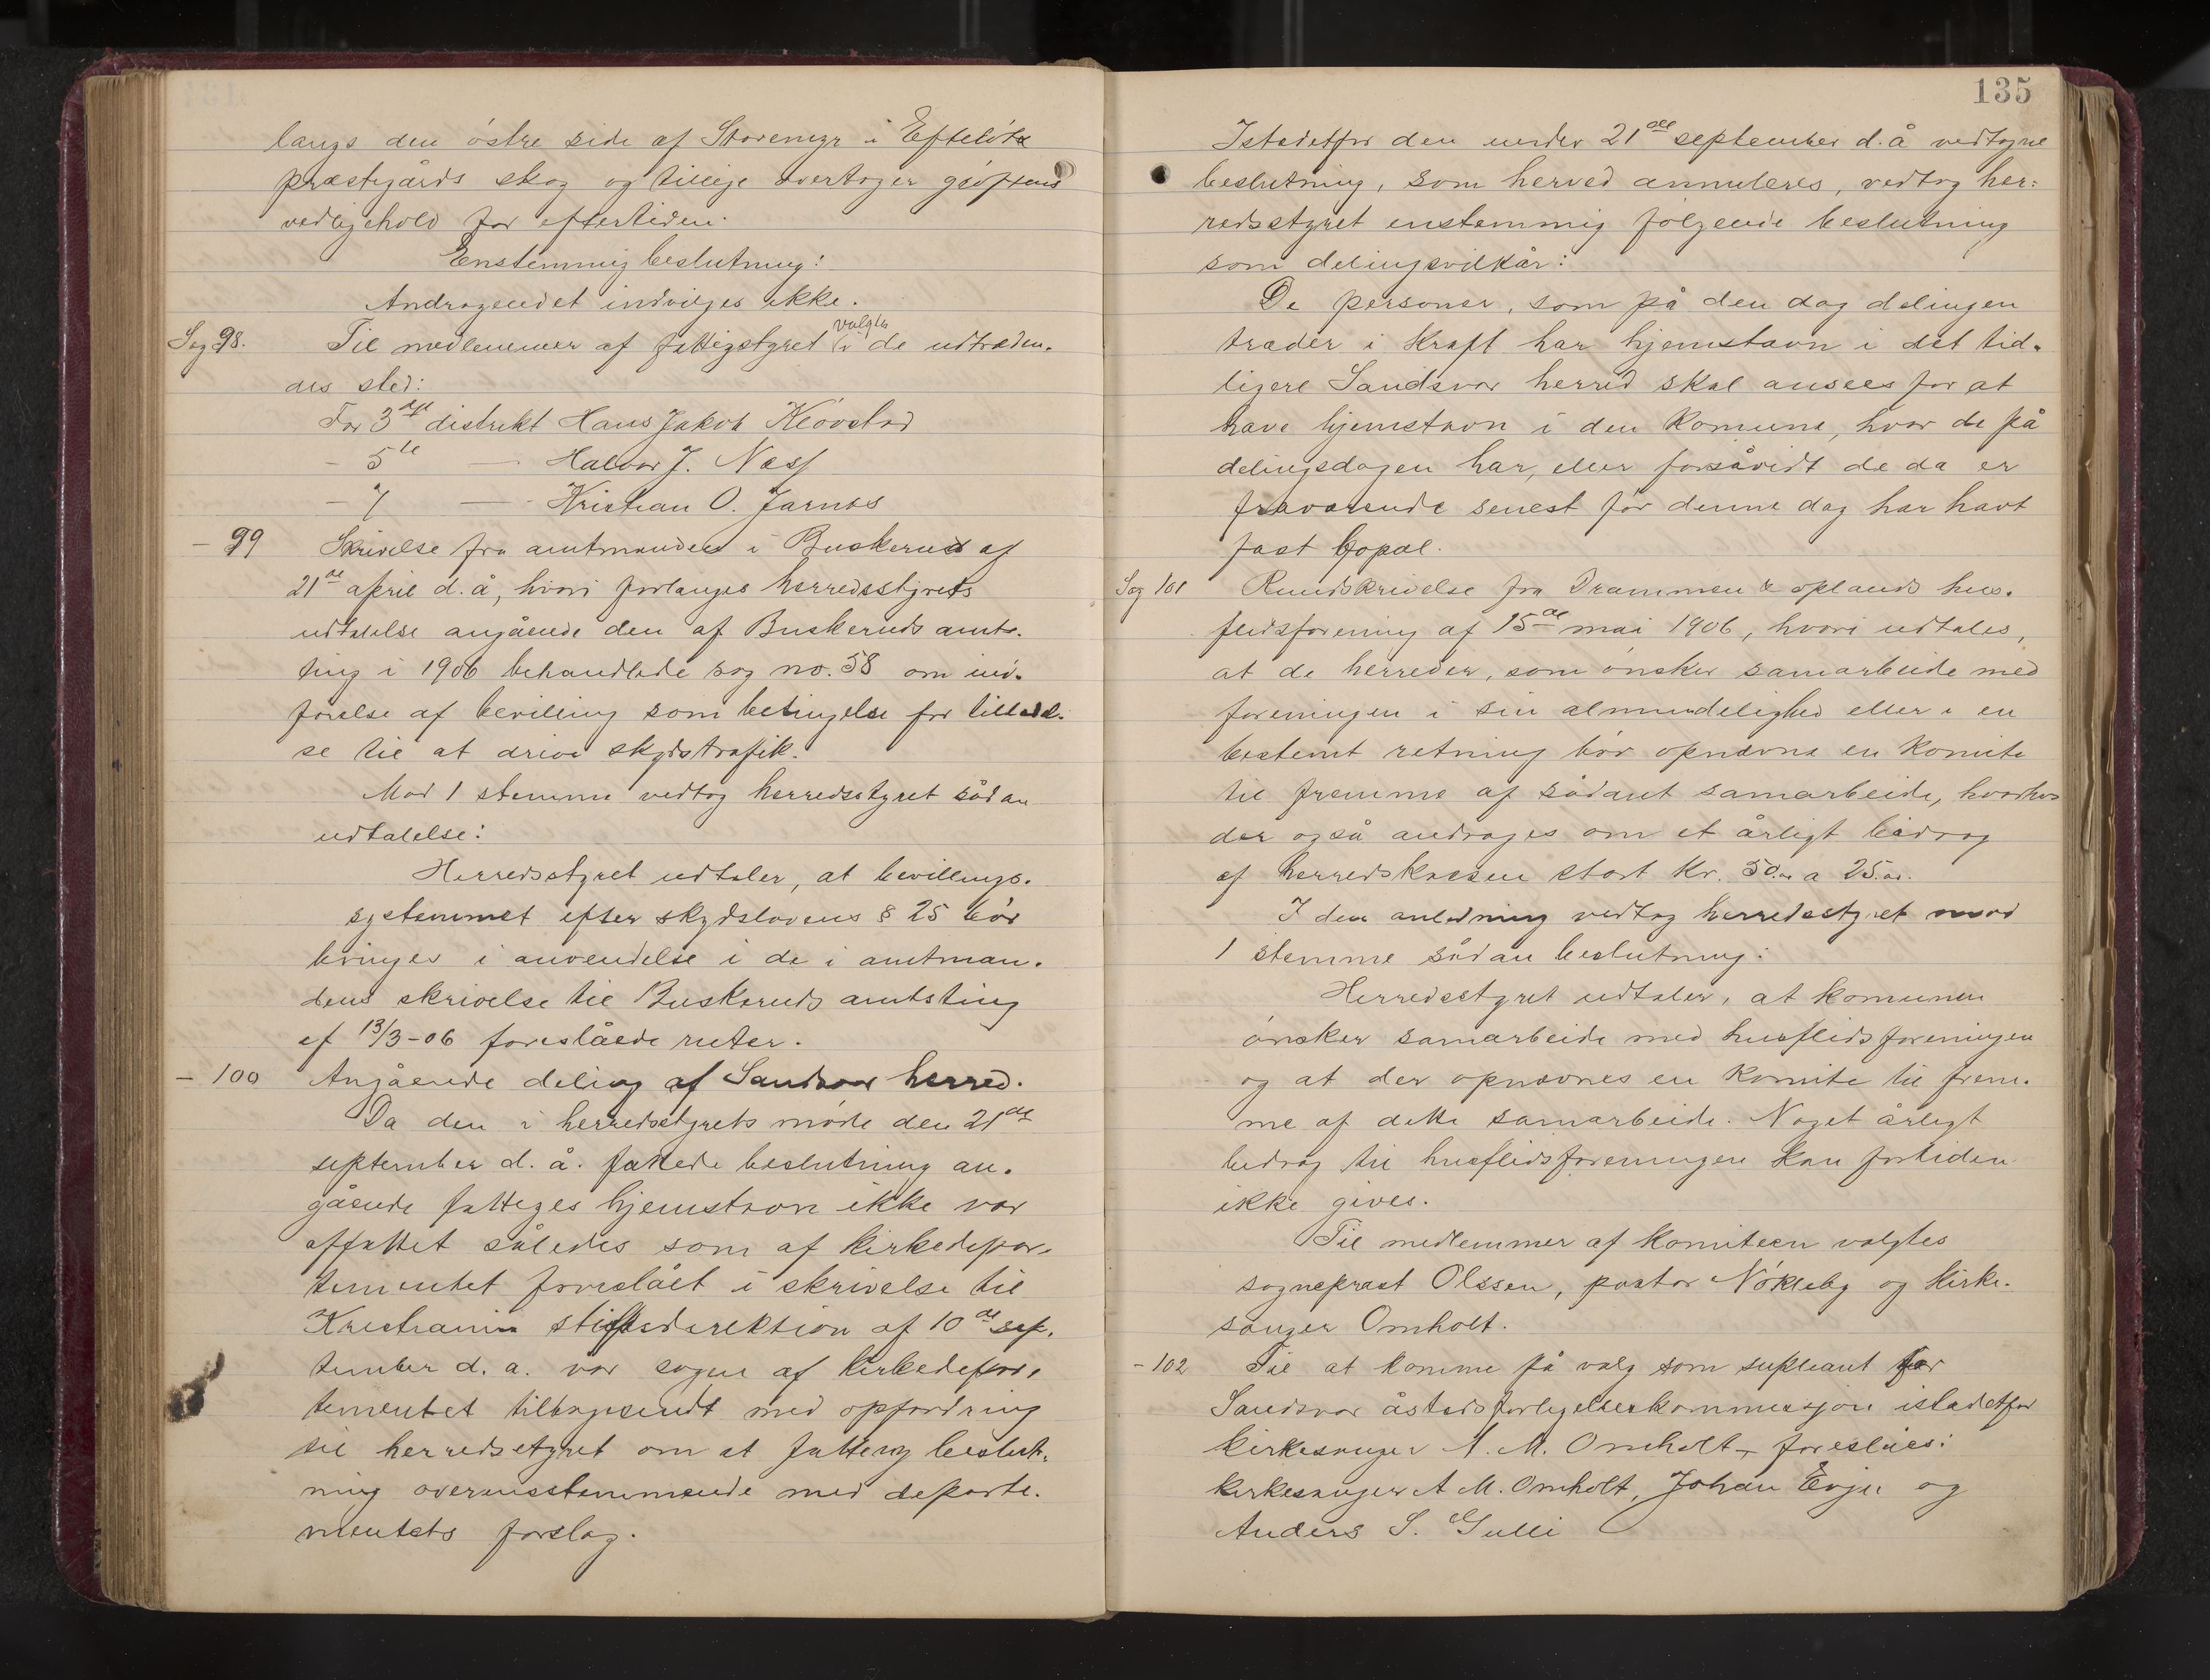 langs den östre side af Storemyr i Efteløts
præstegårds skog og tillige overtager gröftens
vedligehold for eftertiden.
Enstemmig beslutning:
Andragendet indvilges ikke.
Sag 98. Til medlemmer af fattigstyret valgtes i de udtræden-
des sted:
For 3die distrikt Hans Jakob Klövstad
- 5te — Halvor J. Næss
- 7 — Kristian O. Jarnæs
- 99 Skrivelse fra amtmanden i Buskerud af
21de april d. å, hvori forlanges herredsstyrets
udtalelse angående den af Buskeruds amts-
ting i 1906 behandlede sag no. 58 om ind-
förelse af bevilling som betingelse for tilladel-
se til at drive skydstrafik.
Mod 1 stemme vedtog herredsstyret sådan
udtalelse:
Herredsstyret udtaler, at bevillings-
systemmet efter skydslovens § 25 bör
bringes i anvendelse i de i amtman-
dens skrivelse til Buskeruds amtsting
af 13/3-06 foreslåede ruter.
- 100 Angående deling af Sandsvær herred.
Da den i herredsstyrets möde den 21de
september d. å. fattede beslutning an-
gående fattiges hjemstavn ikke var
affattet således som af kirkedepar-
tementet foreslået i skrivelse til
Kristiania stiftsdirektion af 10de sep-
tember d. a. var sagen af kirkedepar-
tementet tilbagesendt med opfordring
til herredsstyret om at fatte ny beslut-
ning overensstemmende med departe-
mentets forslag.
135
Istedetfor den under 21de september d. å vedtagne
beslutning, som herved annuleres, vedtog her-
redsstyret enstemmig følgende beslutning
som delingsvilkår:
De personer, som på den dag delingen
træder i kraft har hjemstavn i det tid-
ligere Sandsvær herred skal ansees for at
have hjemstavn i den komune, hvor de på
delingsdagen har, eller forsåvidt de da er
fraværende senest för denne dag har havt
fast bopæl.
Sag 101 Rundskrivelse fra Drammen & oplands hus-
flidsforening af 15de mai 1906, hvori udtales,
at de herreder, som önsker samarbeide med
foreningen i sin almindelighed eller i en
bestemt retning bör opnævne en komite
til fremme af sådant samarbeide, hvorhos
der også andrages om et årligt bidrag
af herredskassen stort kr. 50.00 a 25.00.
I den anledning vedtog herredsstyret mod
1 stemme sådan beslutning:
Herredsstyret udtaler, at komunen
önsker samarbeide med husflidsforeningen
og at der opnævnes en komite til frem-
me af dette samarbeide. Noget årligt
bidrag til husflidsforeningen kan fortiden
ikke gives.
Til medlemmer af komiteen valgtes
sogneprest Olssen, pastor Nökleby og kirke-
sanger Omholt.
- 102 Til at komme på valg som supleant for
Sandsvær åstedsforligelseskommissjon istedetfor
kirkesanger A. M. Omholt foreslåes:
kirkesanger A M. Omholt, Johan Evju og
Anders S. Gulli